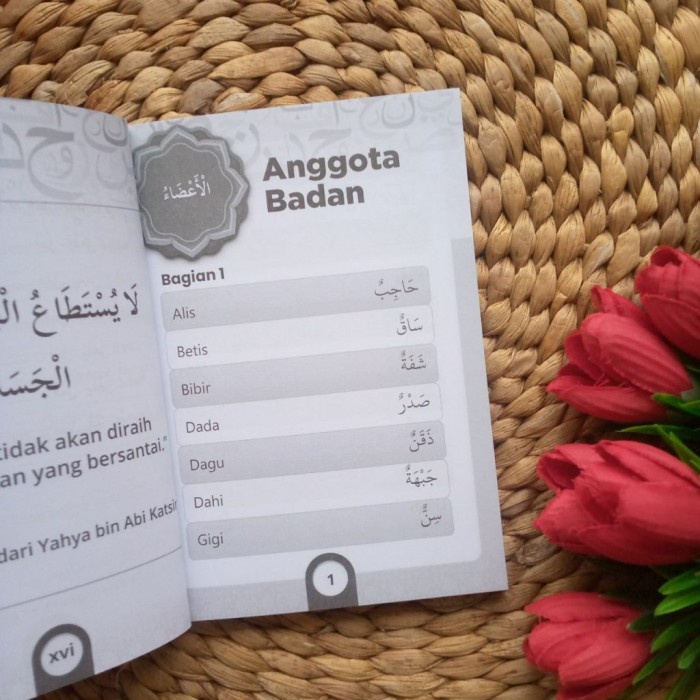 لَا يُسْتَطَاعُ
tidak akan diraih
an yang bersantai."
dari Yahya bin Abi Katsir
xvi
الْأَعْضَاءُ
Anggota
Badan
Bagian 1
Alis حَاجِبٌ
Betis سَاقٌ
Bibir شَفَةٌ
Dada صَدْرٌ
Dagu ذَقَنٌ
Dahi جَبْهَةٌ
Gigi سِنٌّ
1